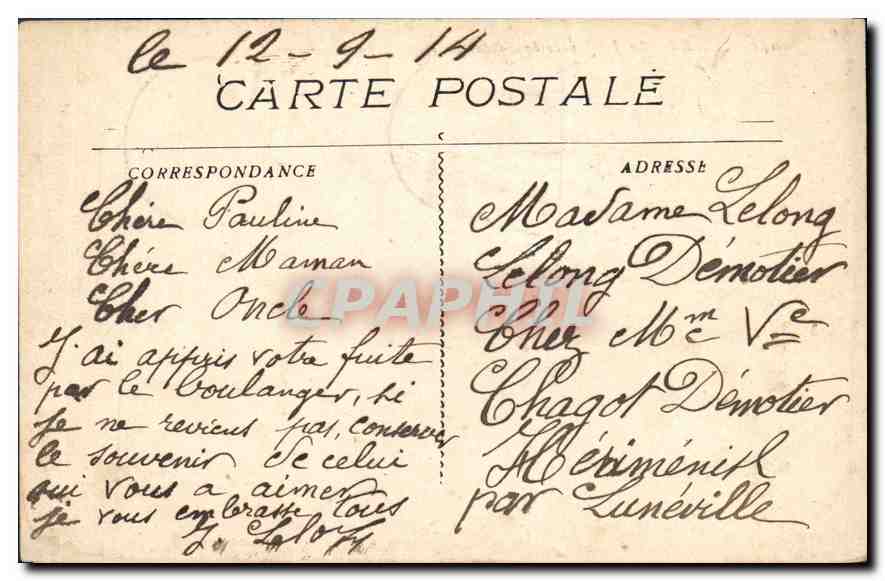 le 12-9-14
CARTE POSTALE
CORRESPONDANCE
Chère Pauline
Chère Maman
Cher Oncle
J'ai appris votre fuite
par le boulanger, si
je ne reviens pas, conservez
le souvenir de celui
qui vous a aimer
je vous embrasse tous
J. Lelong
ADRESSE
Madame Lelong
Lelong Démotier
Chez Mme Vve
Chagot Démotier
Hériménil
par Lunéville
CPAPHIL